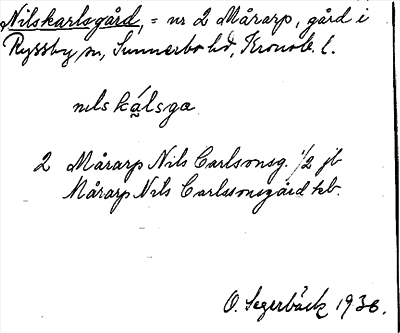 Nilskarlsgård, = nr 2 Mårarp, gård i
Ryssby sn, Sunnerbo hd, Kronob. l.
nilskálsga
2 Mårarp Nils Carlsonsg. 1/2 jb
Mårarp Nils Carlssonsgård kb.
O. Segerbäck 1936.